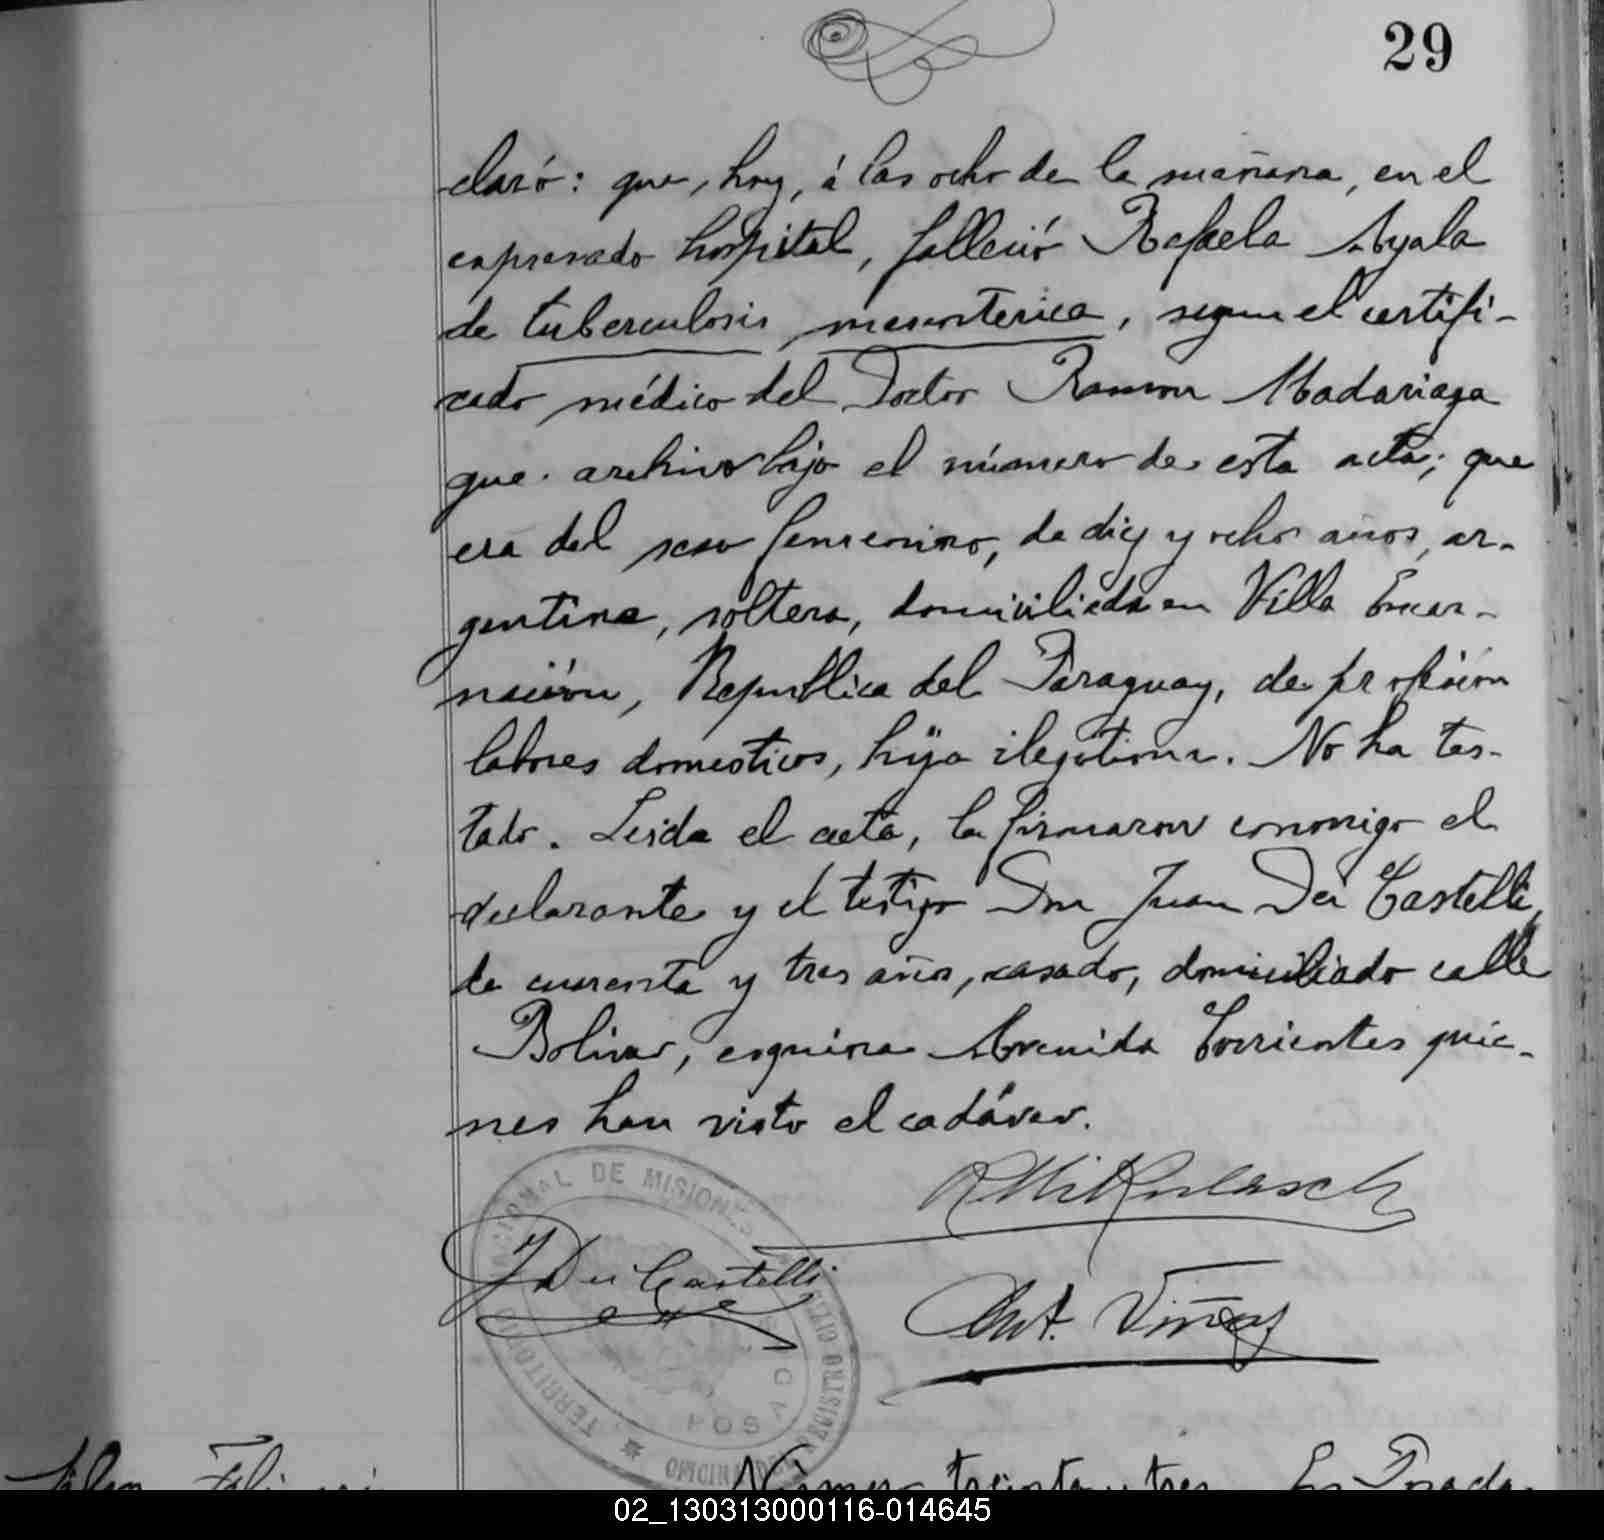 29
claró: que, hoy, á las ocho de la mañana, en el
expresado hospital, falleció Rafaela Ayala
de tuberculosis mesenterica, segun el certifi-
cado médico del Doctor Ramon Madariaga
que archivo bajo el número de esta acta; que
era del sexo femenino, de diez y ocho años, ar-
gentina, soltera, domiciliada en Villa Encar-
nación, Republica del Paraguay, de profesion
labores domesticos, hija ilegitima. No ha tes-
tado. Leida el acta, la firmaron conmigo el
declarante y el testigo Don Juan Dei Castelli,
de cuarenta y tres años, casado, domiciliado calle
Bolivar, esquina Avenida Corrientes quie-
nes han visto el cadáver.
J Dei Castelli
Ant. Viñas
TERRITORIO NACIONAL DE MISIONES
REGISTRO CIVIL
POSADAS
Número treinta y tres. En Posada-
02_130313000116-014645